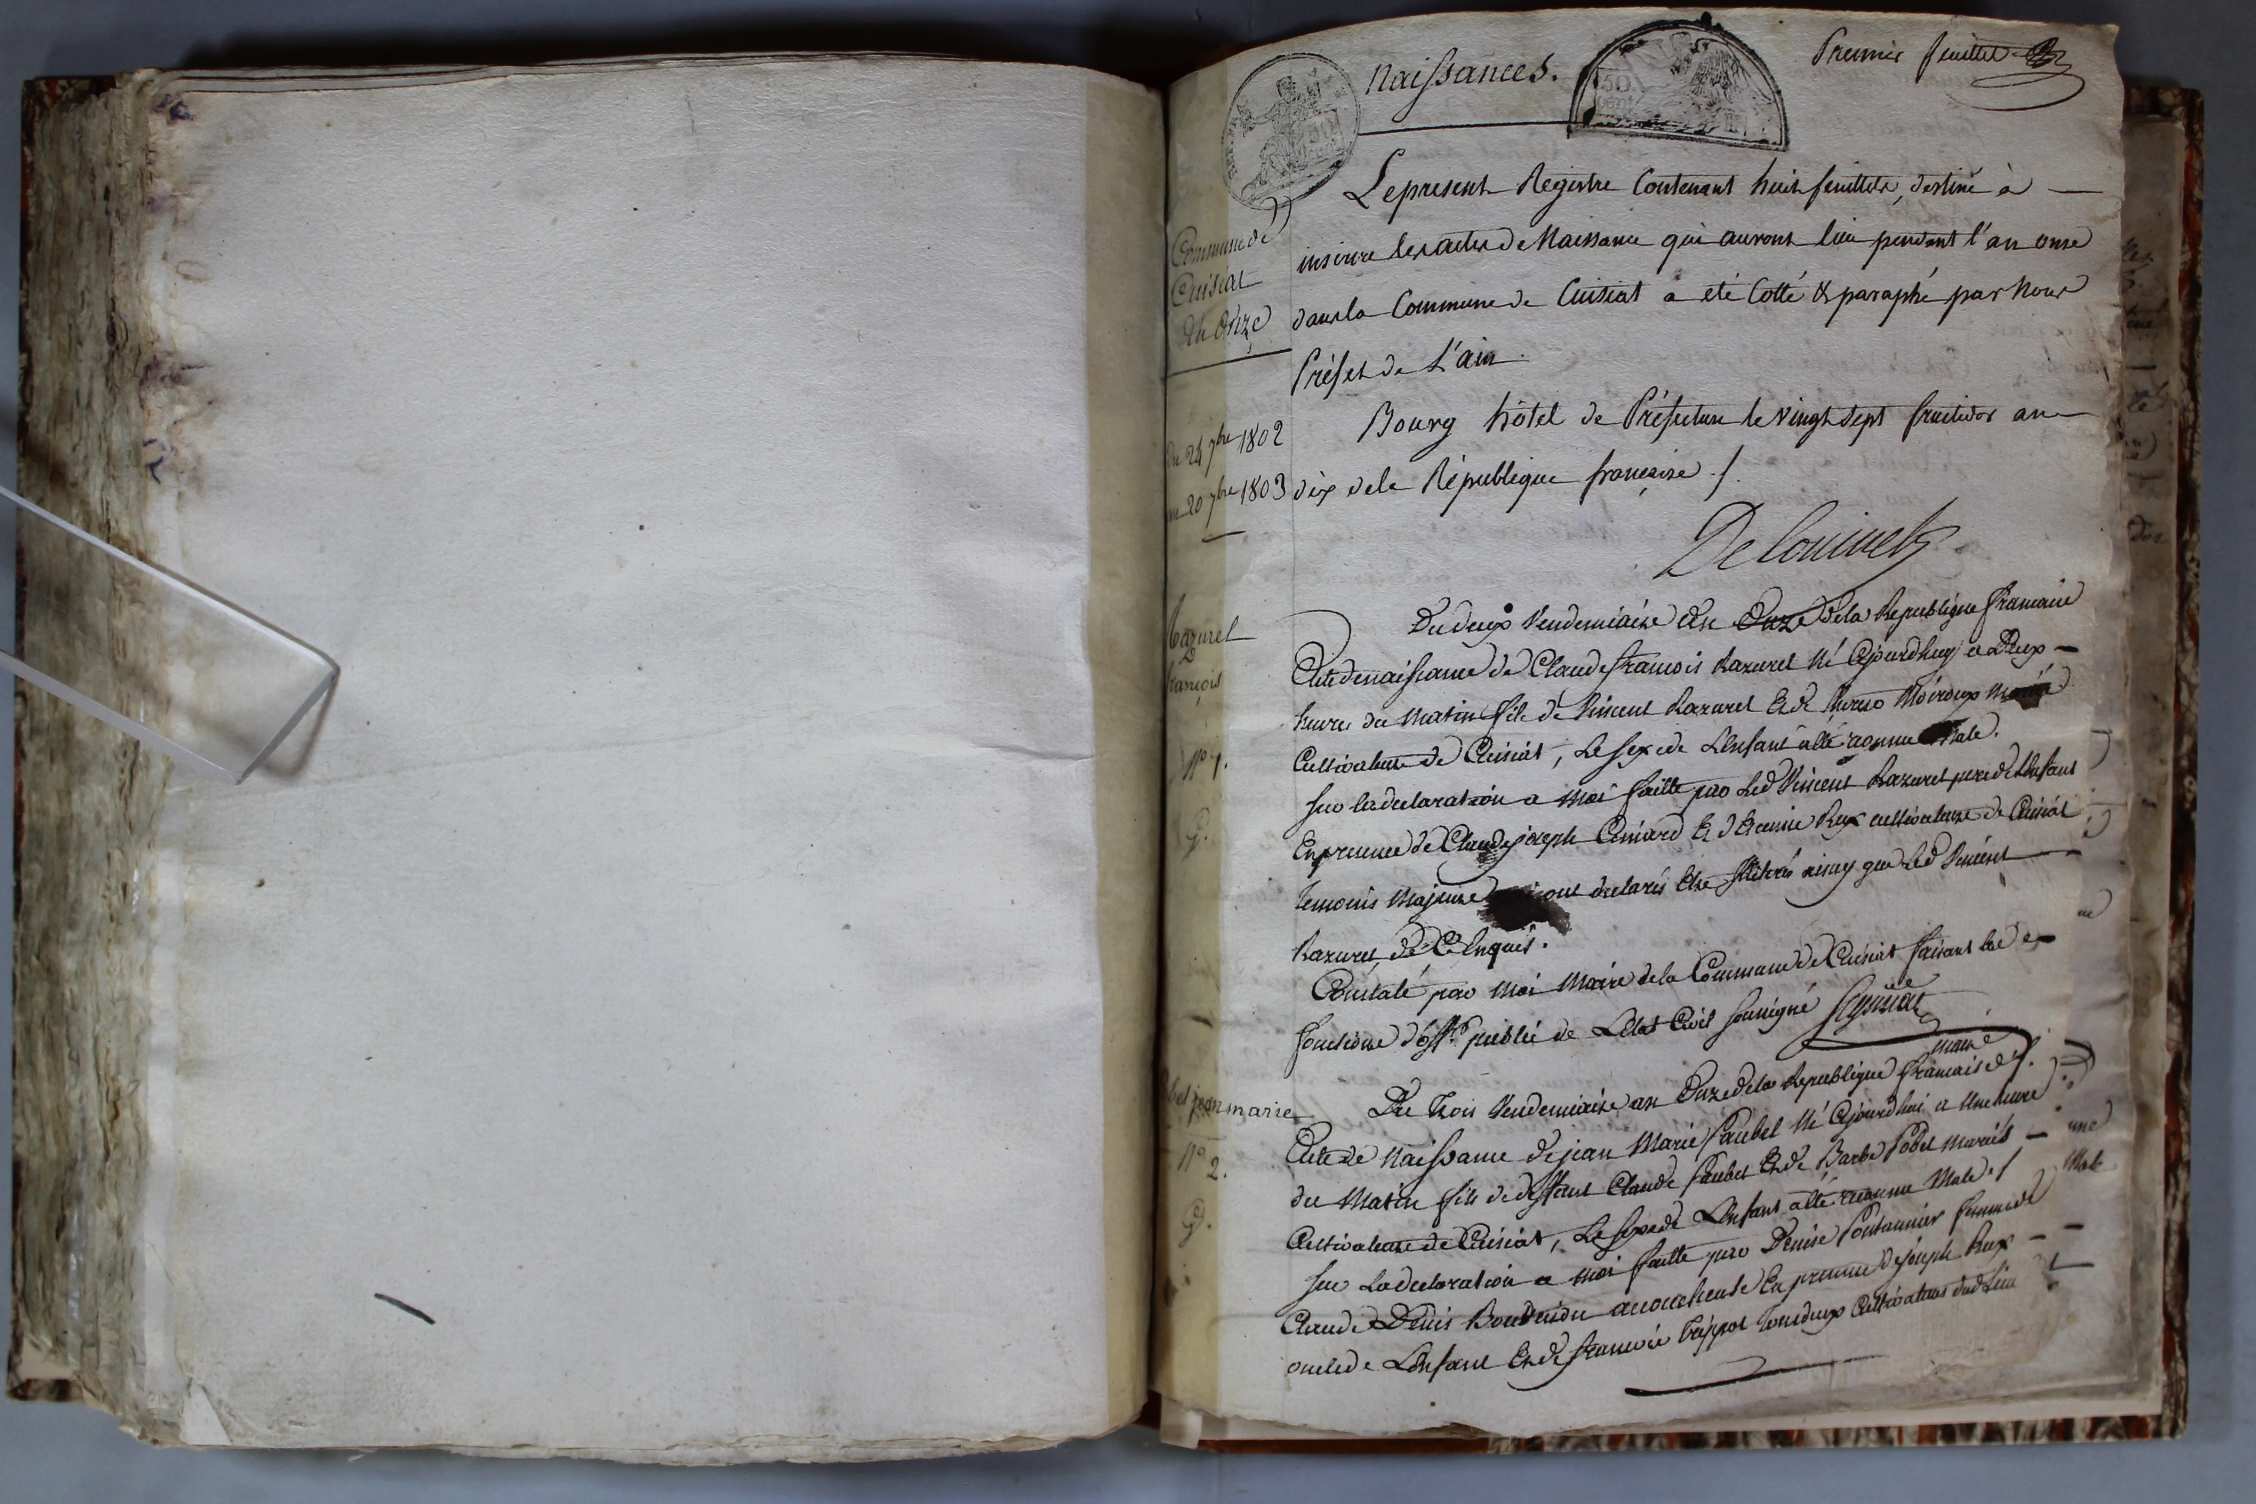 Naissances.
Premier feuillet
Commune de
Cuisiat
an Onze
Le present Registre Contenant huit feuillets, destiné à
inscrire les actes de Naissance qui auront lieu pendant l'an onze
dans la Commune de Cuisiat a été Cotté & paraphé par Nous
Préfet de L'ain.
Bourg hôtel de Préfecture le vingt sept fructidor an
dix de la République française /.
Du 24 7bre 1802
au 20 7bre 1803
Razurel
françois
N° 1.
G.
Du deux Vendemiaire an Onze de la Republique francaise
Acte de naissance de Claude francois Razurel Né Cejourdhuy a Deux
heures du Matin fils de Vincent Razurel Et de Moiroux Mariés
Cultivateurs de Cuisiat, Le sexe de L'Enfant a été reconnu Male.
sur la declaration a Moi faitte par Led Vincent Razurel pere de L'Enfant
En presence de Claude joseph Et d'Etienne Rux cultivateurs de Cuisiat
temoins Majeurs ont declarés Etre illitérés ainsy que Led Vincent
Razurel de Ce Enquis.
Constaté par Moi Maire de la Commune de Cuisiat faisant les
fonctions d'off. public de L'Etat Civil soussigné
maire
jean marie
N° 2.
G.
Du trois Vendemiaire an Onze de la Republique francaise /.
Acte de Naissance de jean Marie Paubel Né Cejourdhui a Une heure
du Matin fils de deffunt Claude Paubel Et de Barbe Podet Mariés
Cultivateurs de Cuisiat, Le sexe de L'Enfant a été reconnu Male /
sur La declaration a Moi faitte par Denise femme de
Claude Denis accoucheuse En presence de joseph Rux
oncle de L'Enfant Et de francois Trippoz tous deux Cultivateurs dud Lieu